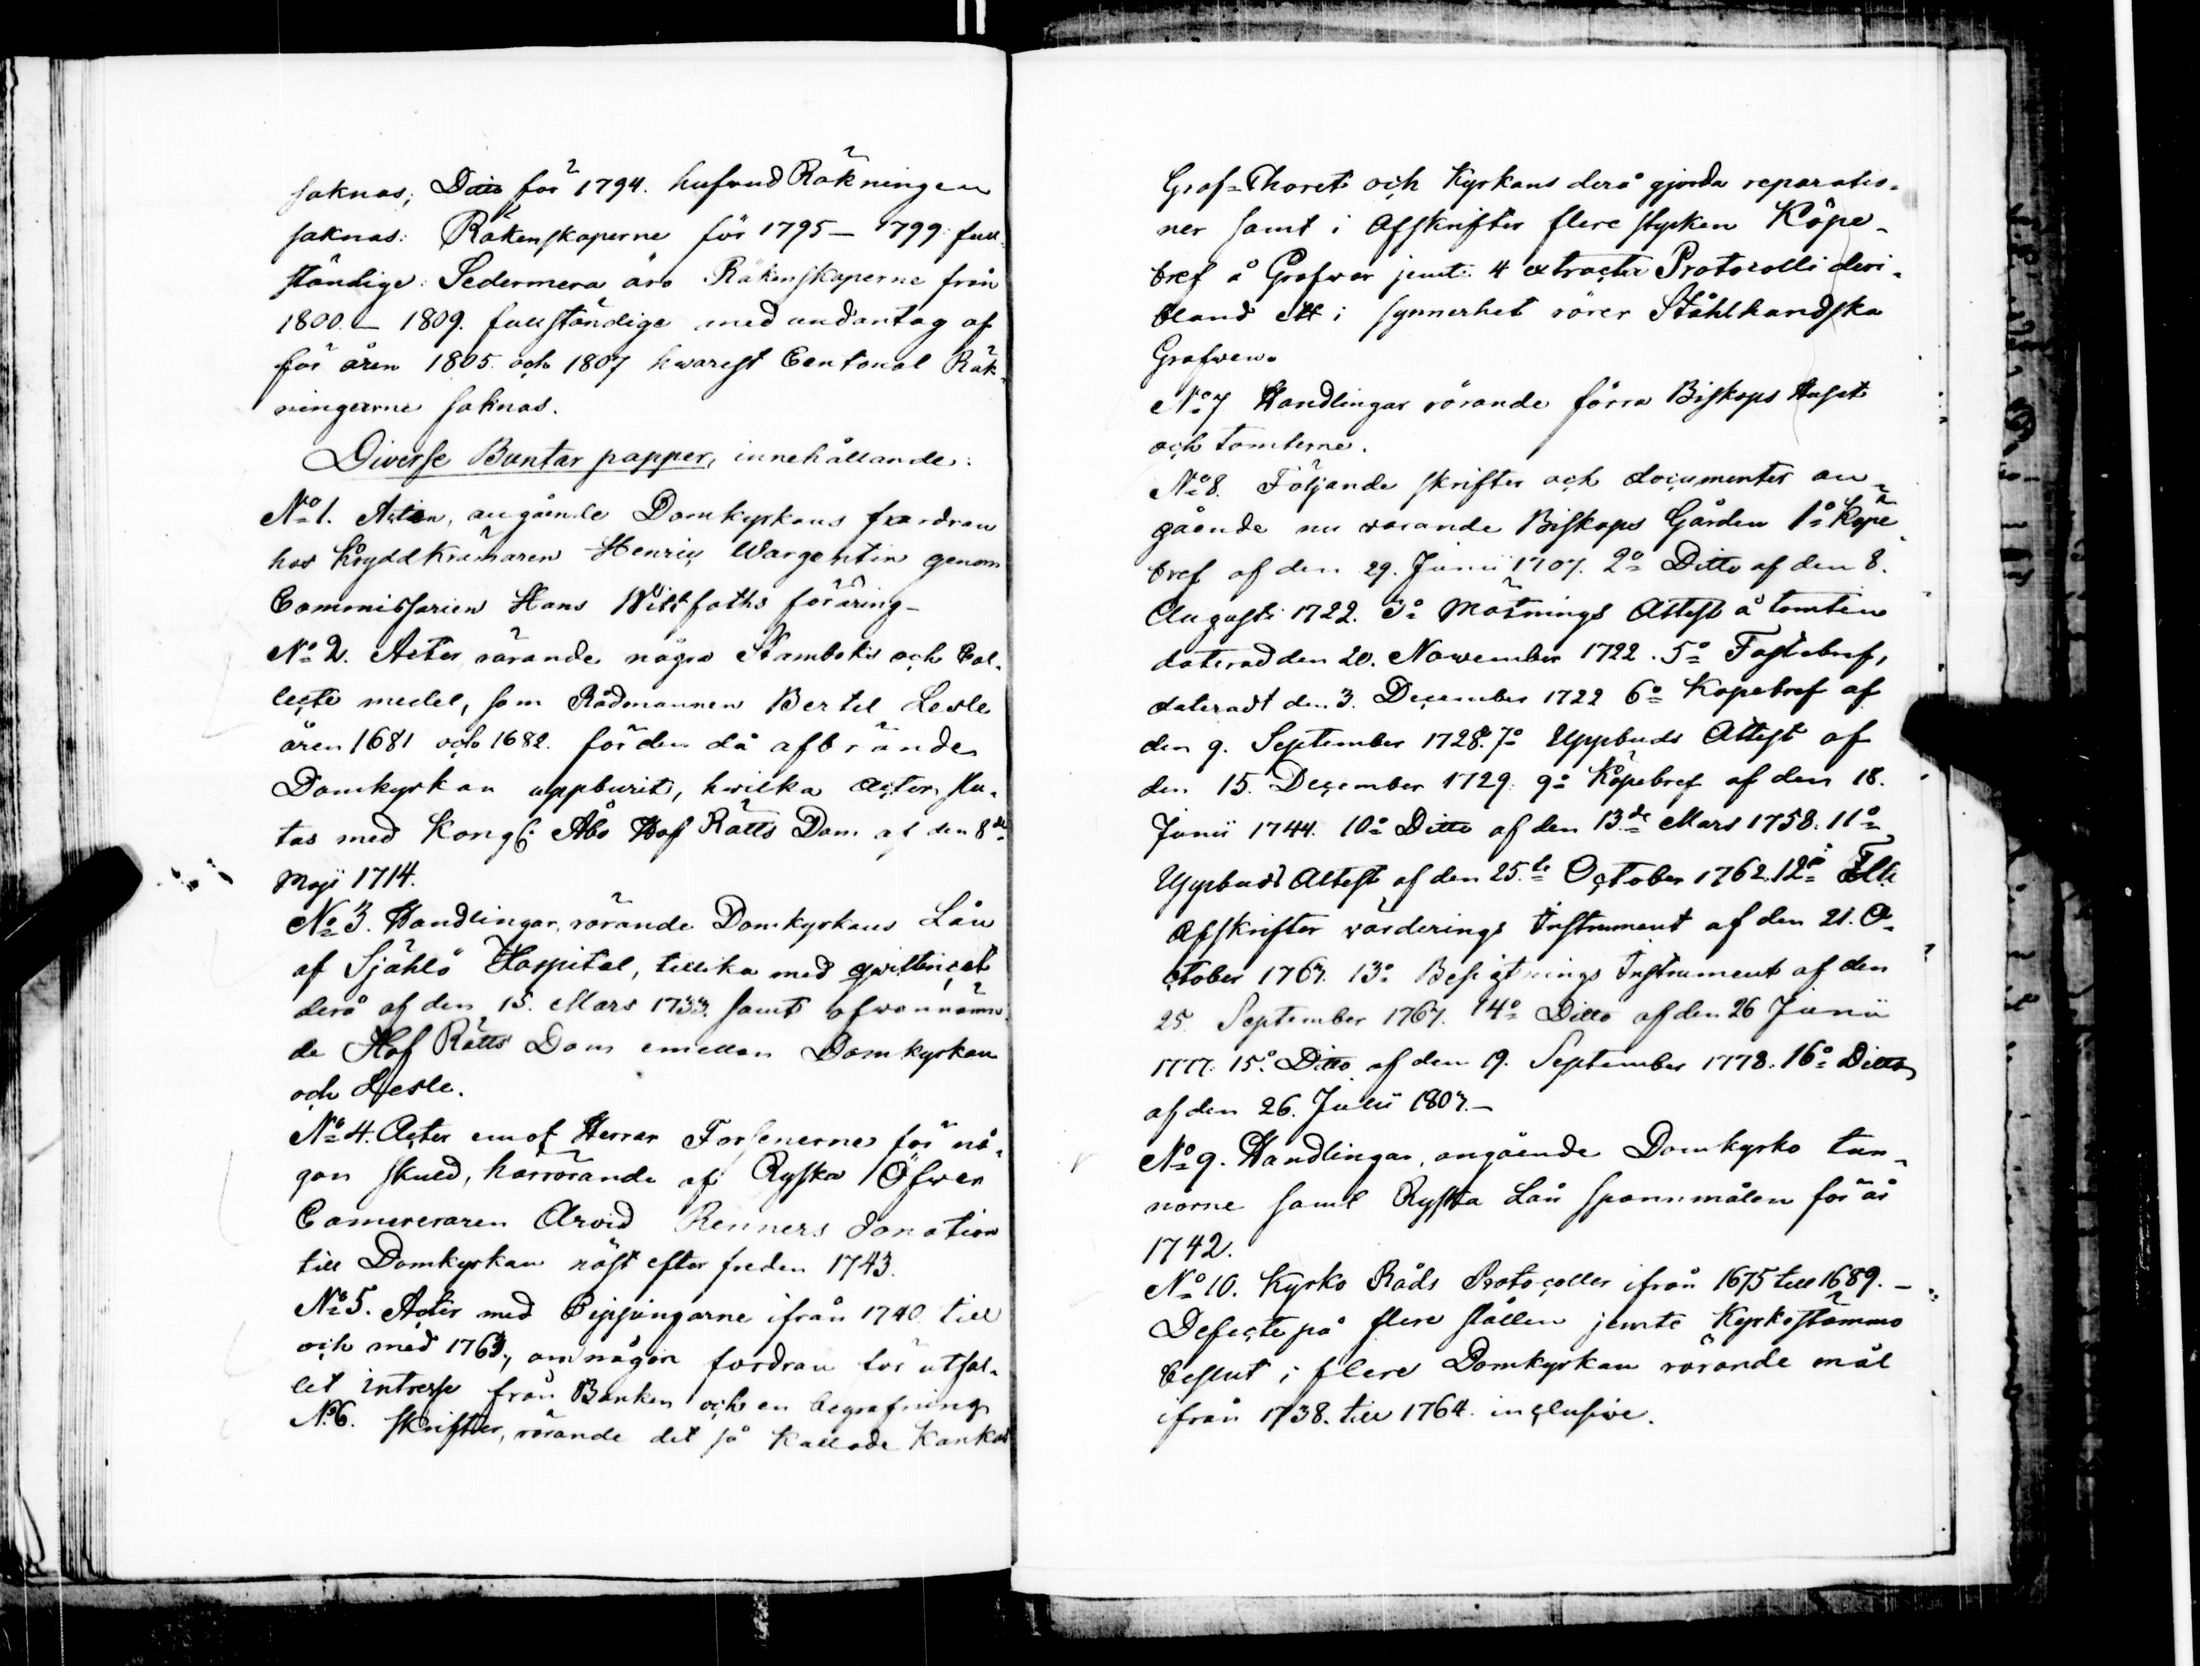 saknas; Ditto för 1794. hufvud Räkningen
saknas: Räkenskaperne för 1795 - 1799: full-
ständige: Sedermera äro Räkenskaperne från
1800. - 1809. fullständige med undantag af
för åren 1805. och 1807 hwarest Centonal Räk-
ningarne saknas.
Diverse Buntar papper, innehållande:
No 1. Acten, angående Domkyrkans fordran
hos Kryddkrämaren Henric Wargentin genom
Commissarien Hans Wittfoths föräring-
No 2. Acter rörande några Stamboks och Col-
lecte medel, som Rådmannen Bertil Lesle
åren 1681 och 1682. för den då afbrände
Domkyrkan uppburit, hwilka acter slu-
tas med Kongl: Åbo Hof Rätts Dom af den 8de
Maji 1714.
No 3. Handlingar, rörande Domkyrkans Lån
af Själö Hospital, tillika med qvittencet
derå af den 15. Mars 1733. samt ofwannämn-
de Hof Rätts Dom emellan Domkyrkan
och Lesle.
No 4. Acter emot Herrar Forsenerne för nå-
gon skuld, härrörande af Ryska Öfwer
Camereraren Arvid Renners donation
till Domkyrkan näst efter freden 1743.
No 5. Acter med Pippingarne ifrån 1740. till
och med 1763, om någon fordran för utfal-
let intresse från Banken och en begrafning
No 6. Skrifter, rörande det så kallade Kankas
Graf-Choret och Kyrkans derå gjorda reparatio-
ner samt i Afskrifter flere stycken Köpe-
bref å Grafwar jemte 4 extracter Protocolli deri-
bland ett i synnerhet rörer Stålhandska
Grafwen.
No 7 Handlingar rörande förra Biskops Huset
och tomterne.
No 8. Följande skrifter och documenter an-
gående nu warande Biskops Gården 1o Köpe-
bref af den 29. Junii 1707. 2o Ditto af den 8.
Augusti 1722. 3o Mätnings Attest å tomten
daterad den 20. November 1722. 5o Fastebref,
dateradt den 3. December 1722 6o Köpebref af
den 9. September 1728. 7o Uppbuds Attest af
den 15. December 1729. 9o Köpebref af den 18.
Junii 1744. 10o Ditto af den 13de Mars 1758. 11o
Uppbuds Attest af den 25te October 1762. 12o
Afskrifter värderings Instrument af den 21. O-
ctober 1767. 13o Besigtnings Instrument af den
25. September 1767. 14o Ditto af den 26 Junii
1777. 15o Ditto af den 19. September 1778. 16o Ditto
af den 26. Julii 1807.-
No 9. Handlingar, angående Domkyrko tun-
norne samt Ryska Lån spannmålen för år
1742.
No 10. Kyrko Råds Protocoller ifrån 1675 till 1689. -
Defecte på flere ställen jemte Kyrkostämmo
beslut i flere Domkyrkan rörande mål
ifrån 1738. till 1764. inclusive.